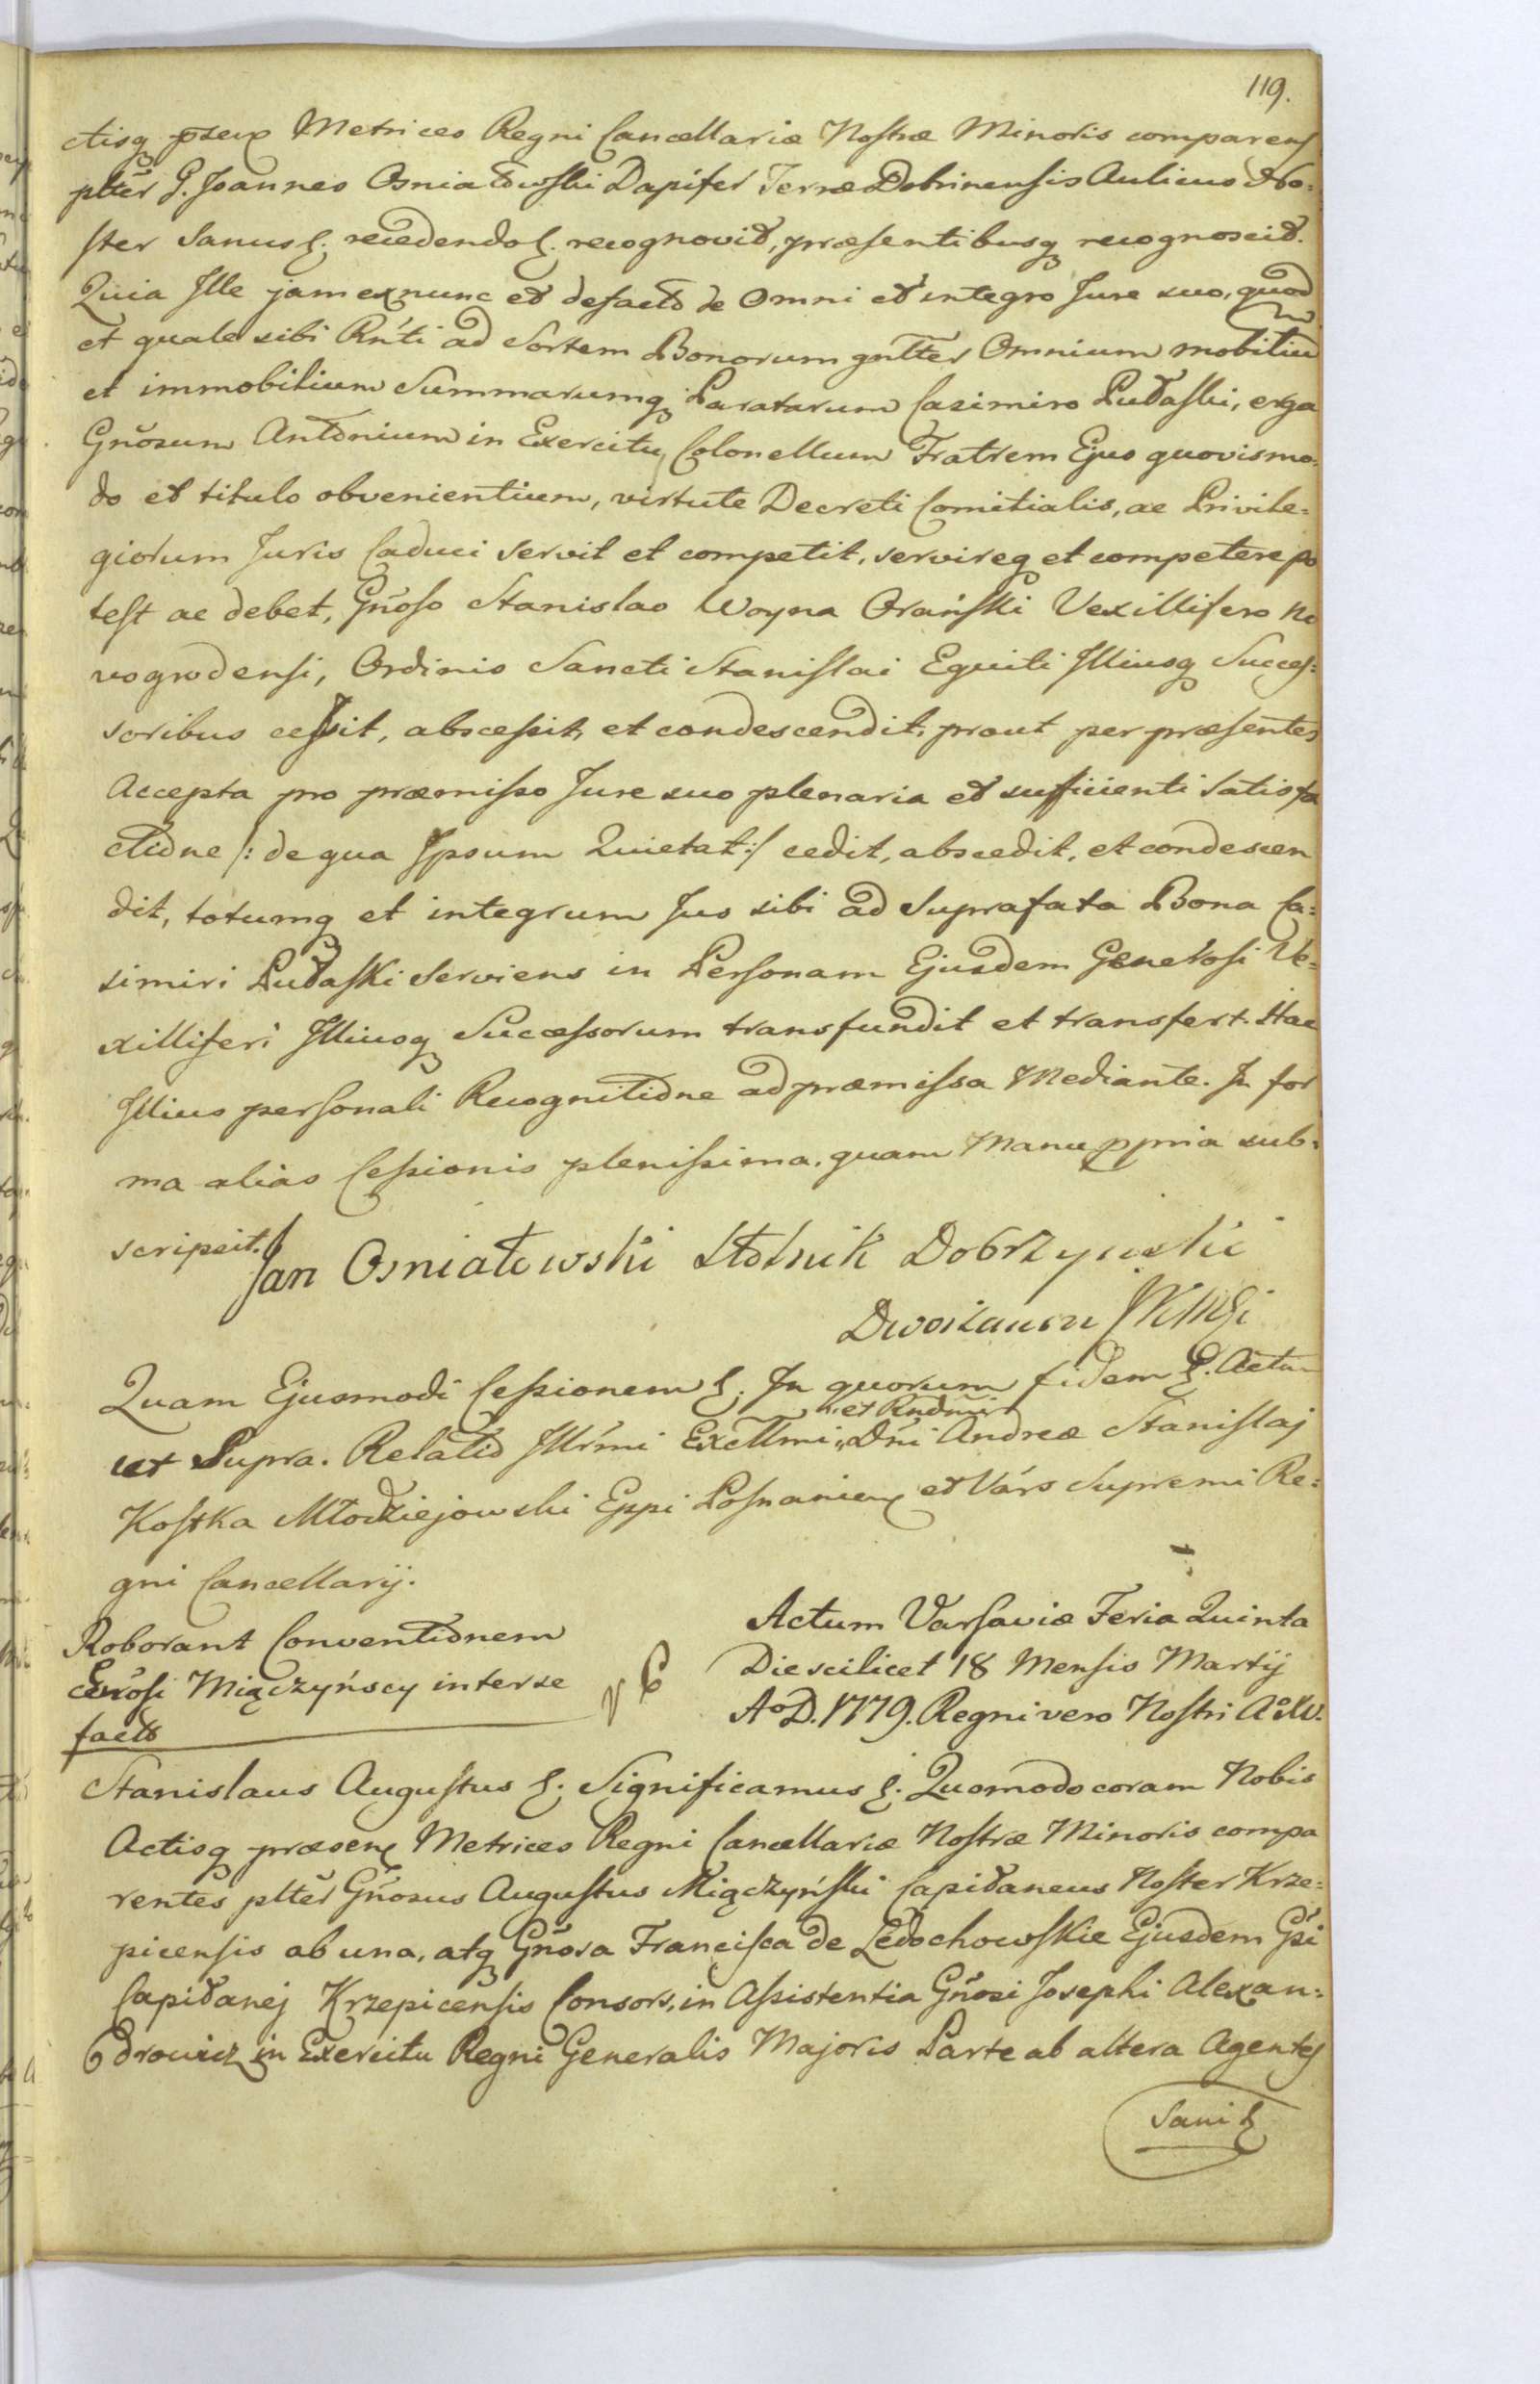 119.
ctisq̨ pzens Metrices Regni Cancellariæ Nostræ Minoris comparens
plter G. Joannes Osniatowski Dapifer Terræ Dobrinensis Aulicus No=
ster Sanus &. recedendo &. recognovit, præsentibusq̨ recognoscit.
Quia Ille jam ex nunc et de facto de Omni et integro Jure suo, quod
et quale sibi Rńti ad Sortem Bonorum gnlter Omnium mobiliu
et immobilium Summarumq̨ Paratarum Casimiro Pułaski, erga
Gnosum Antonium in Exercitu Colonellum Fratrem Ejus quovismo=
do et titulo obvenientium, virtute Decreti Comitialis, ac Privile=
giorum Juris Caduci servit et competit, servireq et competere po
test ac debet, Gnoso Stanislao Woyna Orański Vexillifero No
vogrodensi, Ordinis Sancti Stanislai Equiti Illiusq̨ Succes=
soribus cessit, abscessit, et condescendit, prout per præsentes
Accepta pro præmisso Jure suo plenaria et sufficienti Satisfa
ctione /: de qua Ipsum Quietat :/ cedit, abscedit, et condescen
dit, totumq̨ et integrum Jus sibi ad Suprafata Bona Ca=
simiri Pułaski Serviens in Personam Ejusdem Generosi Ve=
xilliferi Illiusq̨ Successorum transfundit et transfert. Hac
Illius personali Recognitione ad præmissa Mediante. In for
ma alias Cessionis plenissima, quam Manu ppria sub=
scripsit.
Jan Osniatowski Stolnik Dobrzynski
Dworzanin JKMCi
Quam Ejusmodi Cessionem &. In quorum fidem &. Actum
et Rndmi
ut Supra. Relatio Illrmi Excllmi Dńi Andreæ Stanislaj
Kostka Młodziejowski Eppi Posnanien et Vars Supremi Re=
gni Cancellarij.
Actum Varsaviæ Feria Quinta
Die scilicet 18 Mensis Martij
Aº D. 1779. Regni vero Nostri Aº XV.
Roborant Conventionem
Gnosi Miączyńscy inter se
facto
Stanislaus Augustus &. Significamus &. Quomodo coram Nobis
Actisq̨ præsen Metrices Regni Cancellariæ Nostræ Minoris compa
rentes plter Gnosus Augustus Miączyński Capitaneus Noster Krze=
picensis ab una, atq̨ Gnosa Francisca de Ledochowskie Ejusdem Gsi
Capitanej Krzepicensis Consors, in Assistentia Gnosi Josephi Alexan=
drowicz in Exercitu Regni Generalis Majoris Parte ab altera Agentes
Sani &